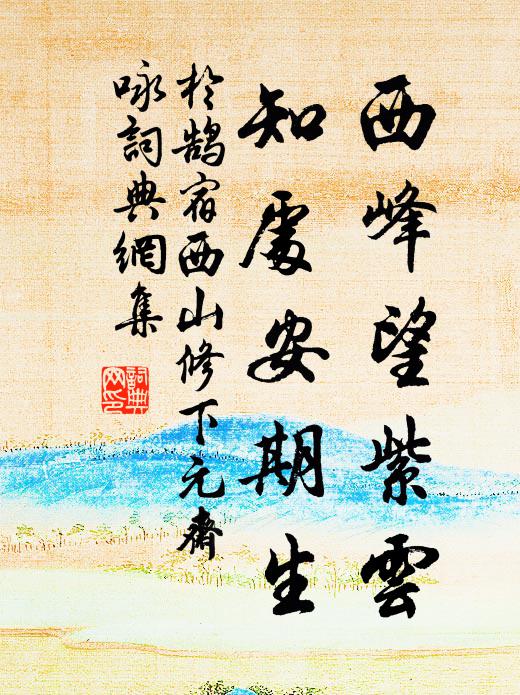 西峰望紫雲
知處安期生
於鵠宿西山修下元齋
咏詞典網集
詞典
网印